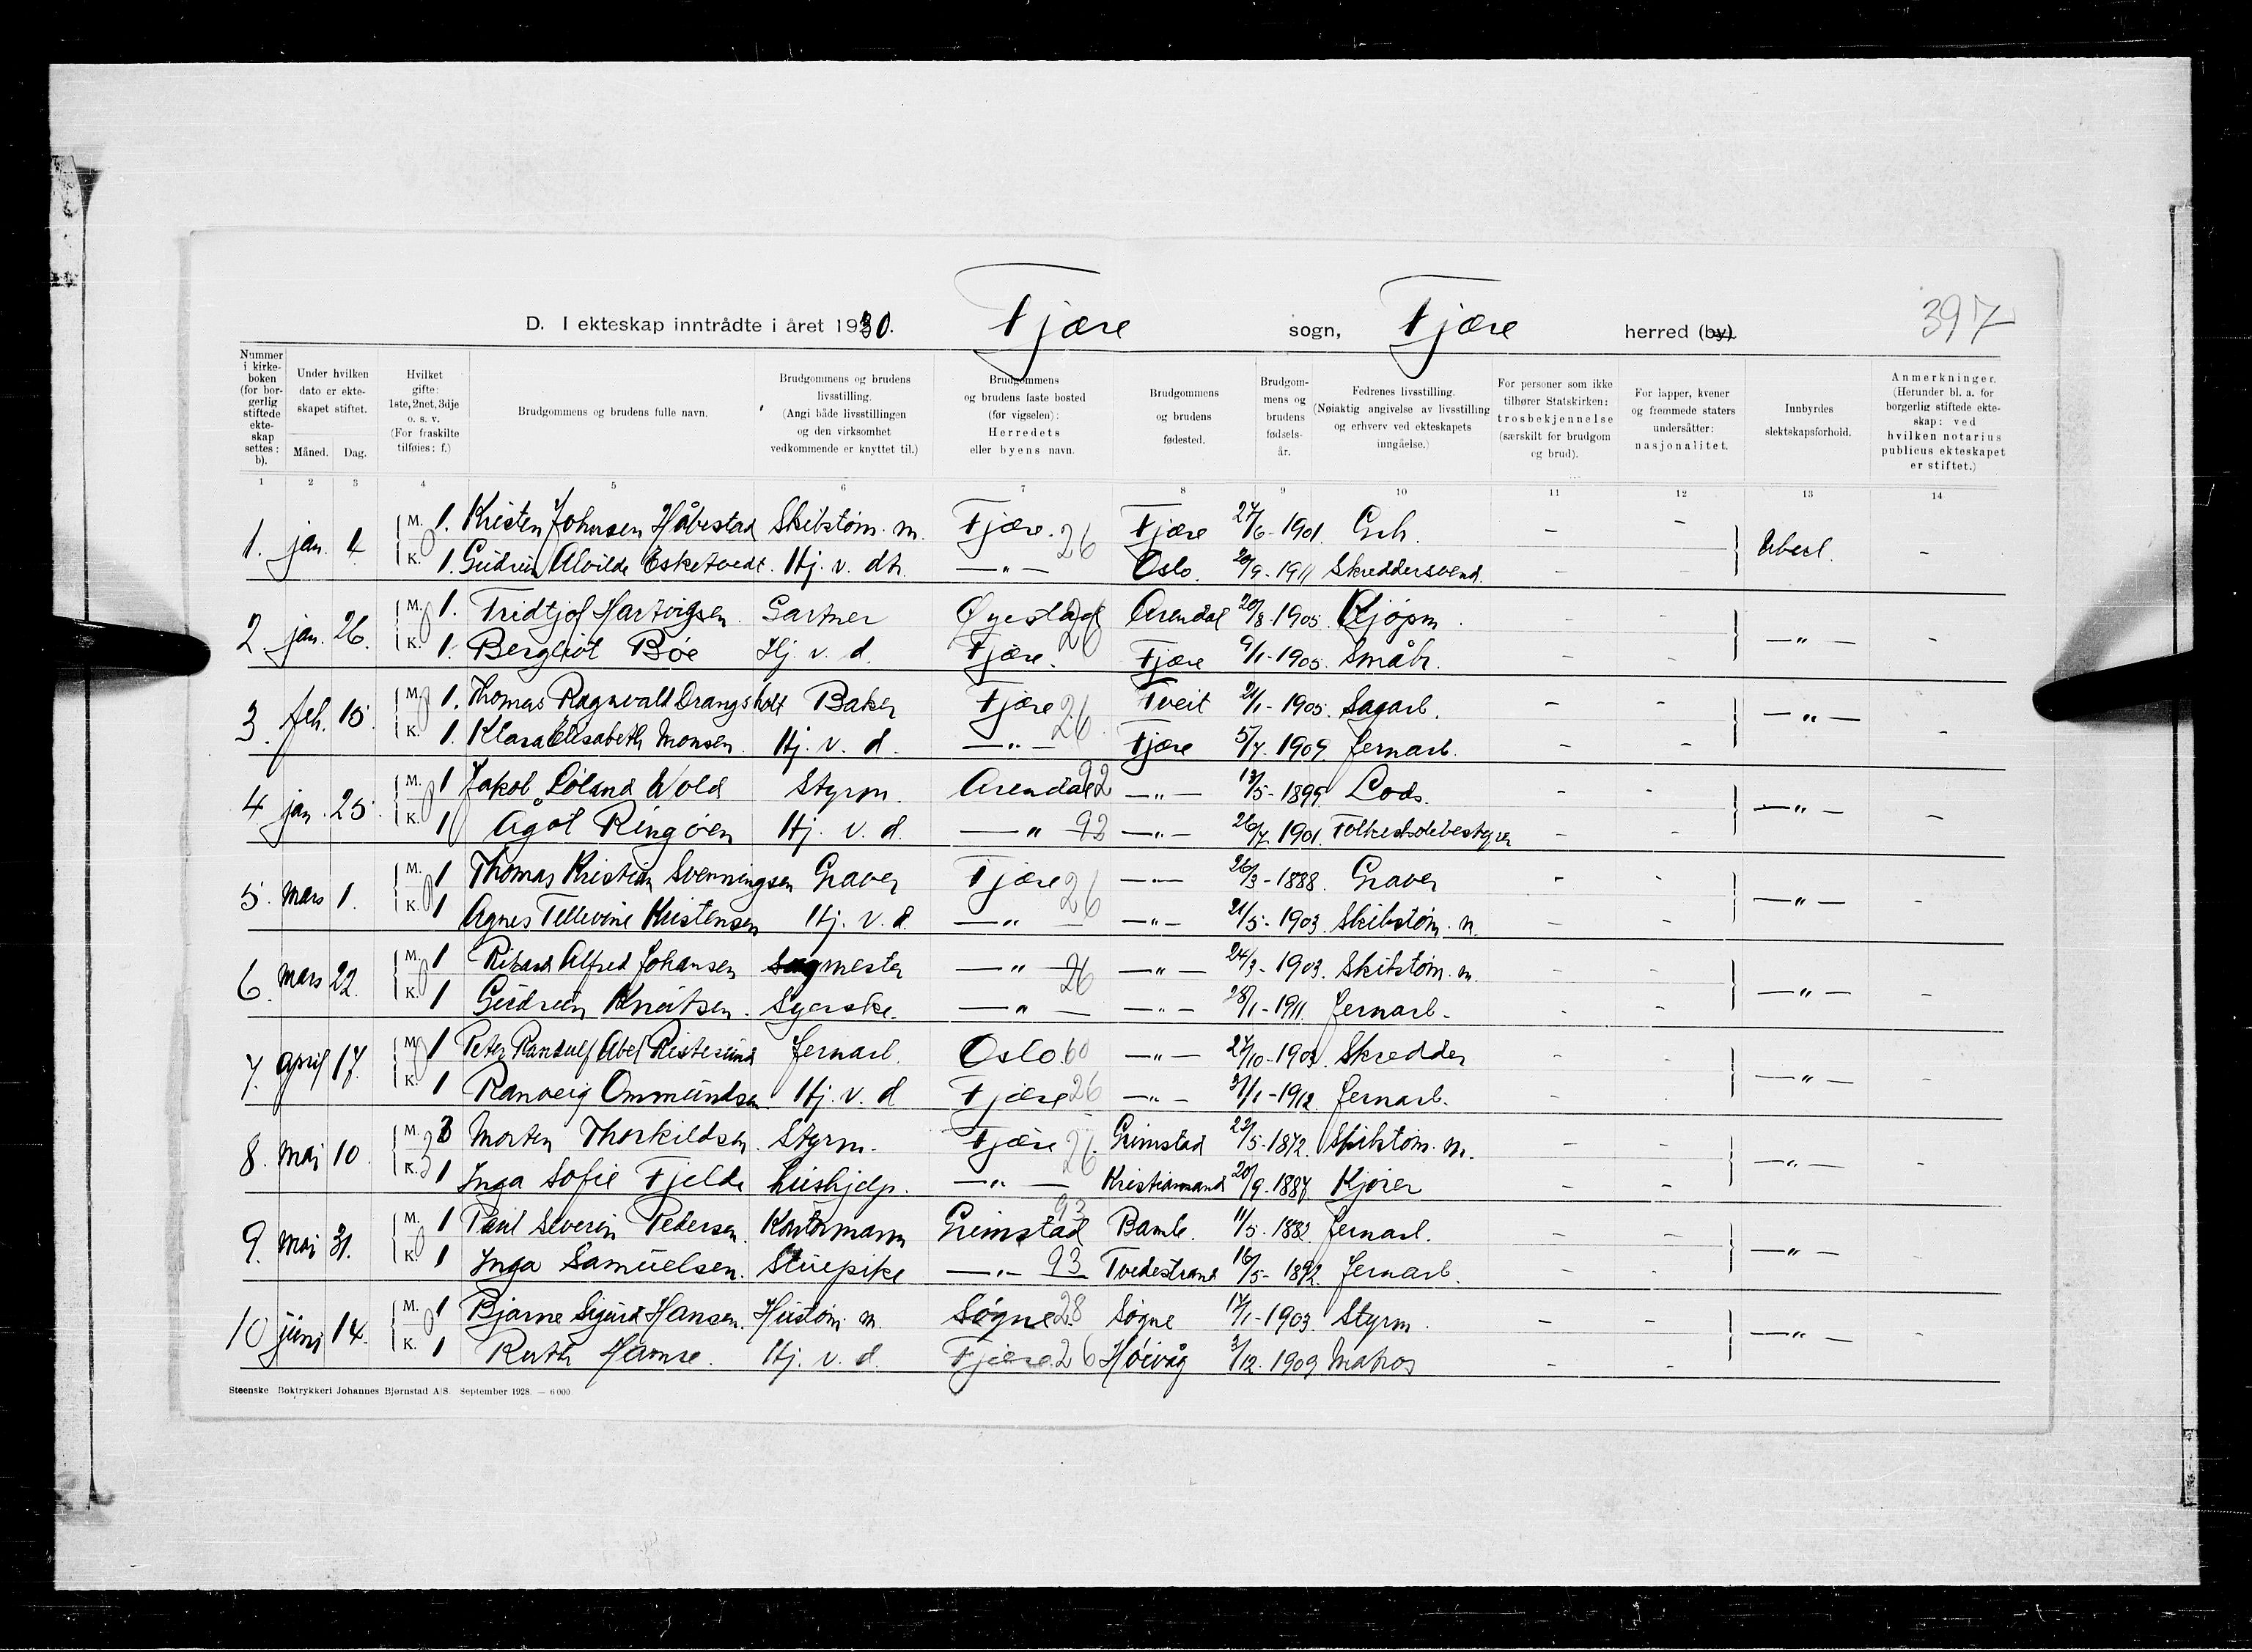 397
D. I ekteskap inntrådte i året 1930. Fjære sogn, Fjære herred (by).
Nummer i kirkeboken (for borgerlig stiftede ekteskap settes: b).
Under hvilken dato er ekteskapet stiftet.
Måned. Dag.
Hvilket gifte: 1ste, 2net, 3dje o. s. v. (For fraskilte tilføies: f.)
Brudgommens og brudens fulle navn.
Brudgommens og brudens livsstilling. (Angi både livsstillingen og den virksomhet vedkommende er knyttet til.)
Brudgommens og brudens faste bosted (før vigselen): Herredets eller byens navn.
Brudgommens og brudens fødested.
Brudgommens og brudens fødselsår.
Fedrenes livsstilling. (Nøiaktig angivelse av livsstilling og erhverv ved ekteskapets inngåelse.)
For personer som ikke tilhører Statskirken: trosbekjennelse (særskilt for brudgom og brud).
For lapper, kvener og fremmede staters undersåtter: nasjonalitet.
Innbyrdes slektskapsforhold.
Anmerkninger. (Herunder bl. a. for borgerlig stiftede ekteskap: ved hvilken notarius publicus ekteskapet er stiftet.)
1 2 3 4 5 6 7 8 9 10 11 12 13 14
1. jan. 4. M. 1. Kristen Johnsen Håbestad Skibstøm. m. Fjære. 26 Fjære 27/6-1901. Grh. - -
K. 1. Gudrun Alvilde Eskedvedt. Hj. v. dtr. —"— Oslo. 20/9-1911 Skreddersvend. - - Ubesl. -
2. jan. 26. M. 1. Fridtjof Hartvigsen. Gartner Øyestad 20 Arendal 20/8-1905. Kjøpm. - -
K. 1. Bergliot Bøe Hj. v. d. Fjære. 26 Fjære 9/1-1905. Småbr. - - —"— -
3. feb. 15. M. 1. Thomas Ragnvald Drangsholt Baker Fjære 26 Tveit 21/1-1905. Sagarb. - -
K. 1. Klara Elisabeth Monsen. Hj. v. d. —"— Fjære 5/7-1909. Jernarb. - - —"— -
4 jan. 25. M. 1 Jakob Løland Wold Styrm. Arendal 92 —"— 13/5-1899. Lods. - -
K. 1 Ågot Ringøen Hj. v. d. —"— 92 —"— 26/7 1901. Folkeskolebestyrer - - —"— -
5. mars 1. M. 1 Thomas Kristian Svenningsen Graver Fjære 26 —"— 26/3-1888. Graver - -
K. 1 Agnes Tellevine Kristensen Hj. v. d. —"— —"— 21/5-1903. Skibstøm. m. - - —"— -
6. mars 22. M. 1 Rikard Alfred Johansen Sagmester —"— 26 —"— 24/3-1903. Skibstøm. m. - -
K. 1 Gudrun Knutsen. Syerske. —"— —"— 28/1-1911. Jernarb. - - —"— -
7. april 17. M. 1 Peter Randulf Abel Ristesund Jernarb. Oslo. 60 —"— 27/10-1903. Skredder - -
K. 1 Ranveig Ommundsen. Hj. v. d Fjære 26 —"— 31/1-1912. Jernarb. - - —"— -
8. mai 10. M. 2 Morten Thorkildsen. Styrm. Fjære 26 Grimstad 22/5-1872. Skibstøm. m. - -
K. 1 Inga Sofie Fjelde Hushjelp. —"— Kristiansand 20/9-1887 Kjører - - —"— -
9. mai 31. M. 1 Paul Severin Pedersen. Kontormann Grimstad 93 Bamle. 11/5-1882. Jernarb. - -
K. 1 Inga Samuelsen. Stuepike —"— 93 Tvedestrand 16/5-1892. Jernarb. - - —"— -
10 juni 14. M. 1 Bjarne Sigurd Hansen. Hustøm. m. Søgne 28 Søgne 17/1-1903. Styrm. - -
K. 1 Ruth Hamre. Hj. v. d. Fjære 26 Høivåg 3/12-1909. Matros - - —"— -
Steenske Boktrykkeri Johannes Bjørnstad A/S. September 1928. — 6000.